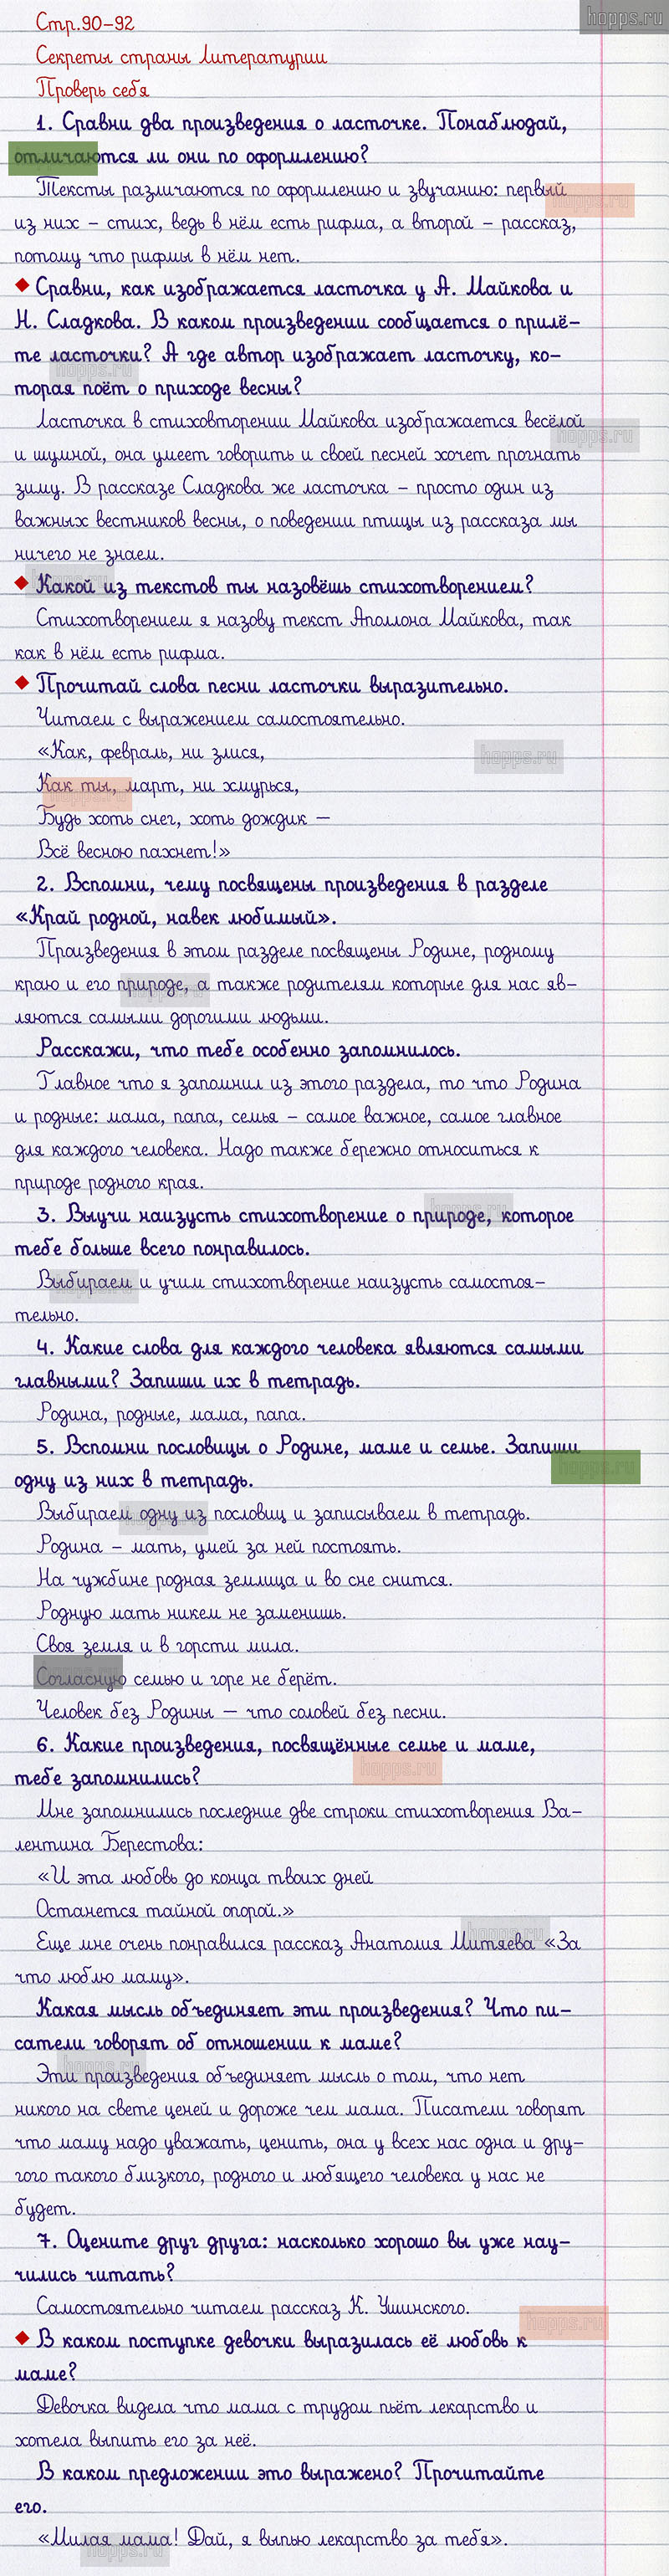 hopps.ru
Стр.90-92
Секреты страны Литературии
Проверь себя
1. Сравни два произведения о ласточке. Понаблюдай,
отличаются ли они по оформлению?
Тексты различаются по оформлению и звучанию: первый
hopps.ru
из них – стих, ведь в нём есть рифма, а второй – рассказ,
потому что рифмы в нём нет.
Сравни, как изображается ласточка у А. Майкова и
Н. Сладкова. В каком произведении сообщается о прилё-
те ласточки? А где автор изображает ласточку, ко-
hopps.ru
торая поёт о приходе весны?
Ласточка в стиховторении Майкова изображается весёлой
hopps.ru
и шумной, она умеет говорить и своей песней хочет прогнать
зиму. В рассказе Сладкова же ласточка – просто один из
важных вестников весны, о поведении птицы из рассказа мы
ничего не знаем.
hopps.ru
Какой из текстов ты назовёшь стихотворением?
Стихотворением я назову текст Аполлона Майкова, так
как в нём есть рифма.
Прочитай слова песни ласточки выразительно.
Читаем с выражением самостоятельно.
«Как, февраль, ни злися,
hopps.ru
Как ты, март, ни хмурься,
hopps.ru
Будь хоть снег, хоть дождик —
Всё весною пахнет!»
2. Вспомни, чему посвящены произведения в разделе
«Край родной, навек любимый».
Произведения в этом разделе посвящены Родине, родному
краю и его природе, а также родителям которые для нас яв-
hopps.ru
ляются самыми дорогими людьми.
Расскажи, что тебе особенно запомнилось.
Главное что я запомнил из этого раздела, то что Родина
и родные: мама, папа, семья – самое важное, самое главное
для каждого человека. Надо также бережно относиться к
природе родного края.
hopps.ru
3. Выучи наизусть стихотворение о природе, которое
тебе больше всего понравилось.
Выбираем и учим стихотворение наизусть самостоя-
тельно.
4. Какие слова для каждого человека являются самыми
главными? Запиши их в тетрадь.
Родина, родные, мама, папа.
5. Вспомни пословицы о Родине, маме и семье. Запиши
hopps.ru
одну из них в тетрадь.
Выбираем одну из пословиц и записываем в тетрадь.
Родина – мать, умей за ней постоять.
На чужбине родная землица и во сне снится.
Родную мать никем не заменишь.
Своя земля и в горсти мила.
Согласную семью и горе не берёт.
Человек без Родины — что соловей без песни.
6. Какие произведения, посвящённые семье и маме,
hopps.ru
тебе запомнились?
Мне запомнились последние две строки стихотворения Ва-
лентина Берестова:
«И эта любовь до конца твоих дней
Останется тайной опорой.»
hopps.ru
Еще мне очень понравился рассказ Анатолия Митяева «За
что люблю маму».
Какая мысль объединяет эти произведения? Что пи-
сатели говорят об отношении к маме?
hopps.ru
Эти произведения объединяет мысль о том, что нет
никого на свете ценей и дороже чем мама. Писатели говорят
что маму надо уважать, ценить, она у всех нас одна и дру-
гого такого близкого, родного и любящего человека у нас не
будет.
7. Оцените друг друга: насколько хорошо вы уже нау-
чились читать?
Самостоятельно читаем рассказ К. Ушинского.
hopps.ru
В каком поступке девочки выразилась её любовь к
маме?
Девочка видела что мама с трудом пьёт лекарство и
хотела выпить его за неё.
В каком предложении это выражено? Прочитайте
его.
«Милая мама! Дай, я выпью лекарство за тебя».
hopps.ru